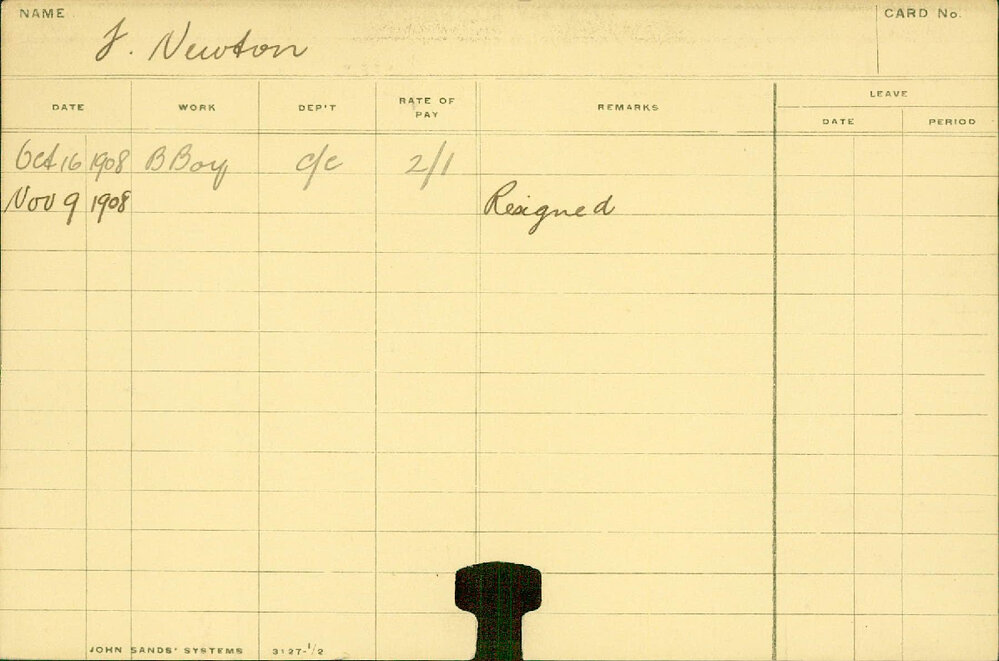 NAME
J. Newton
CARD No.
DATE WORK DEP'T RATE OF PAY REMARKS LEAVE
DATE PERIOD
Oct 16 1908 B Boy c/c 2/1
Nov 9 1908 Resigned
JOHN SANDS' SYSTEMS 3127-1/2